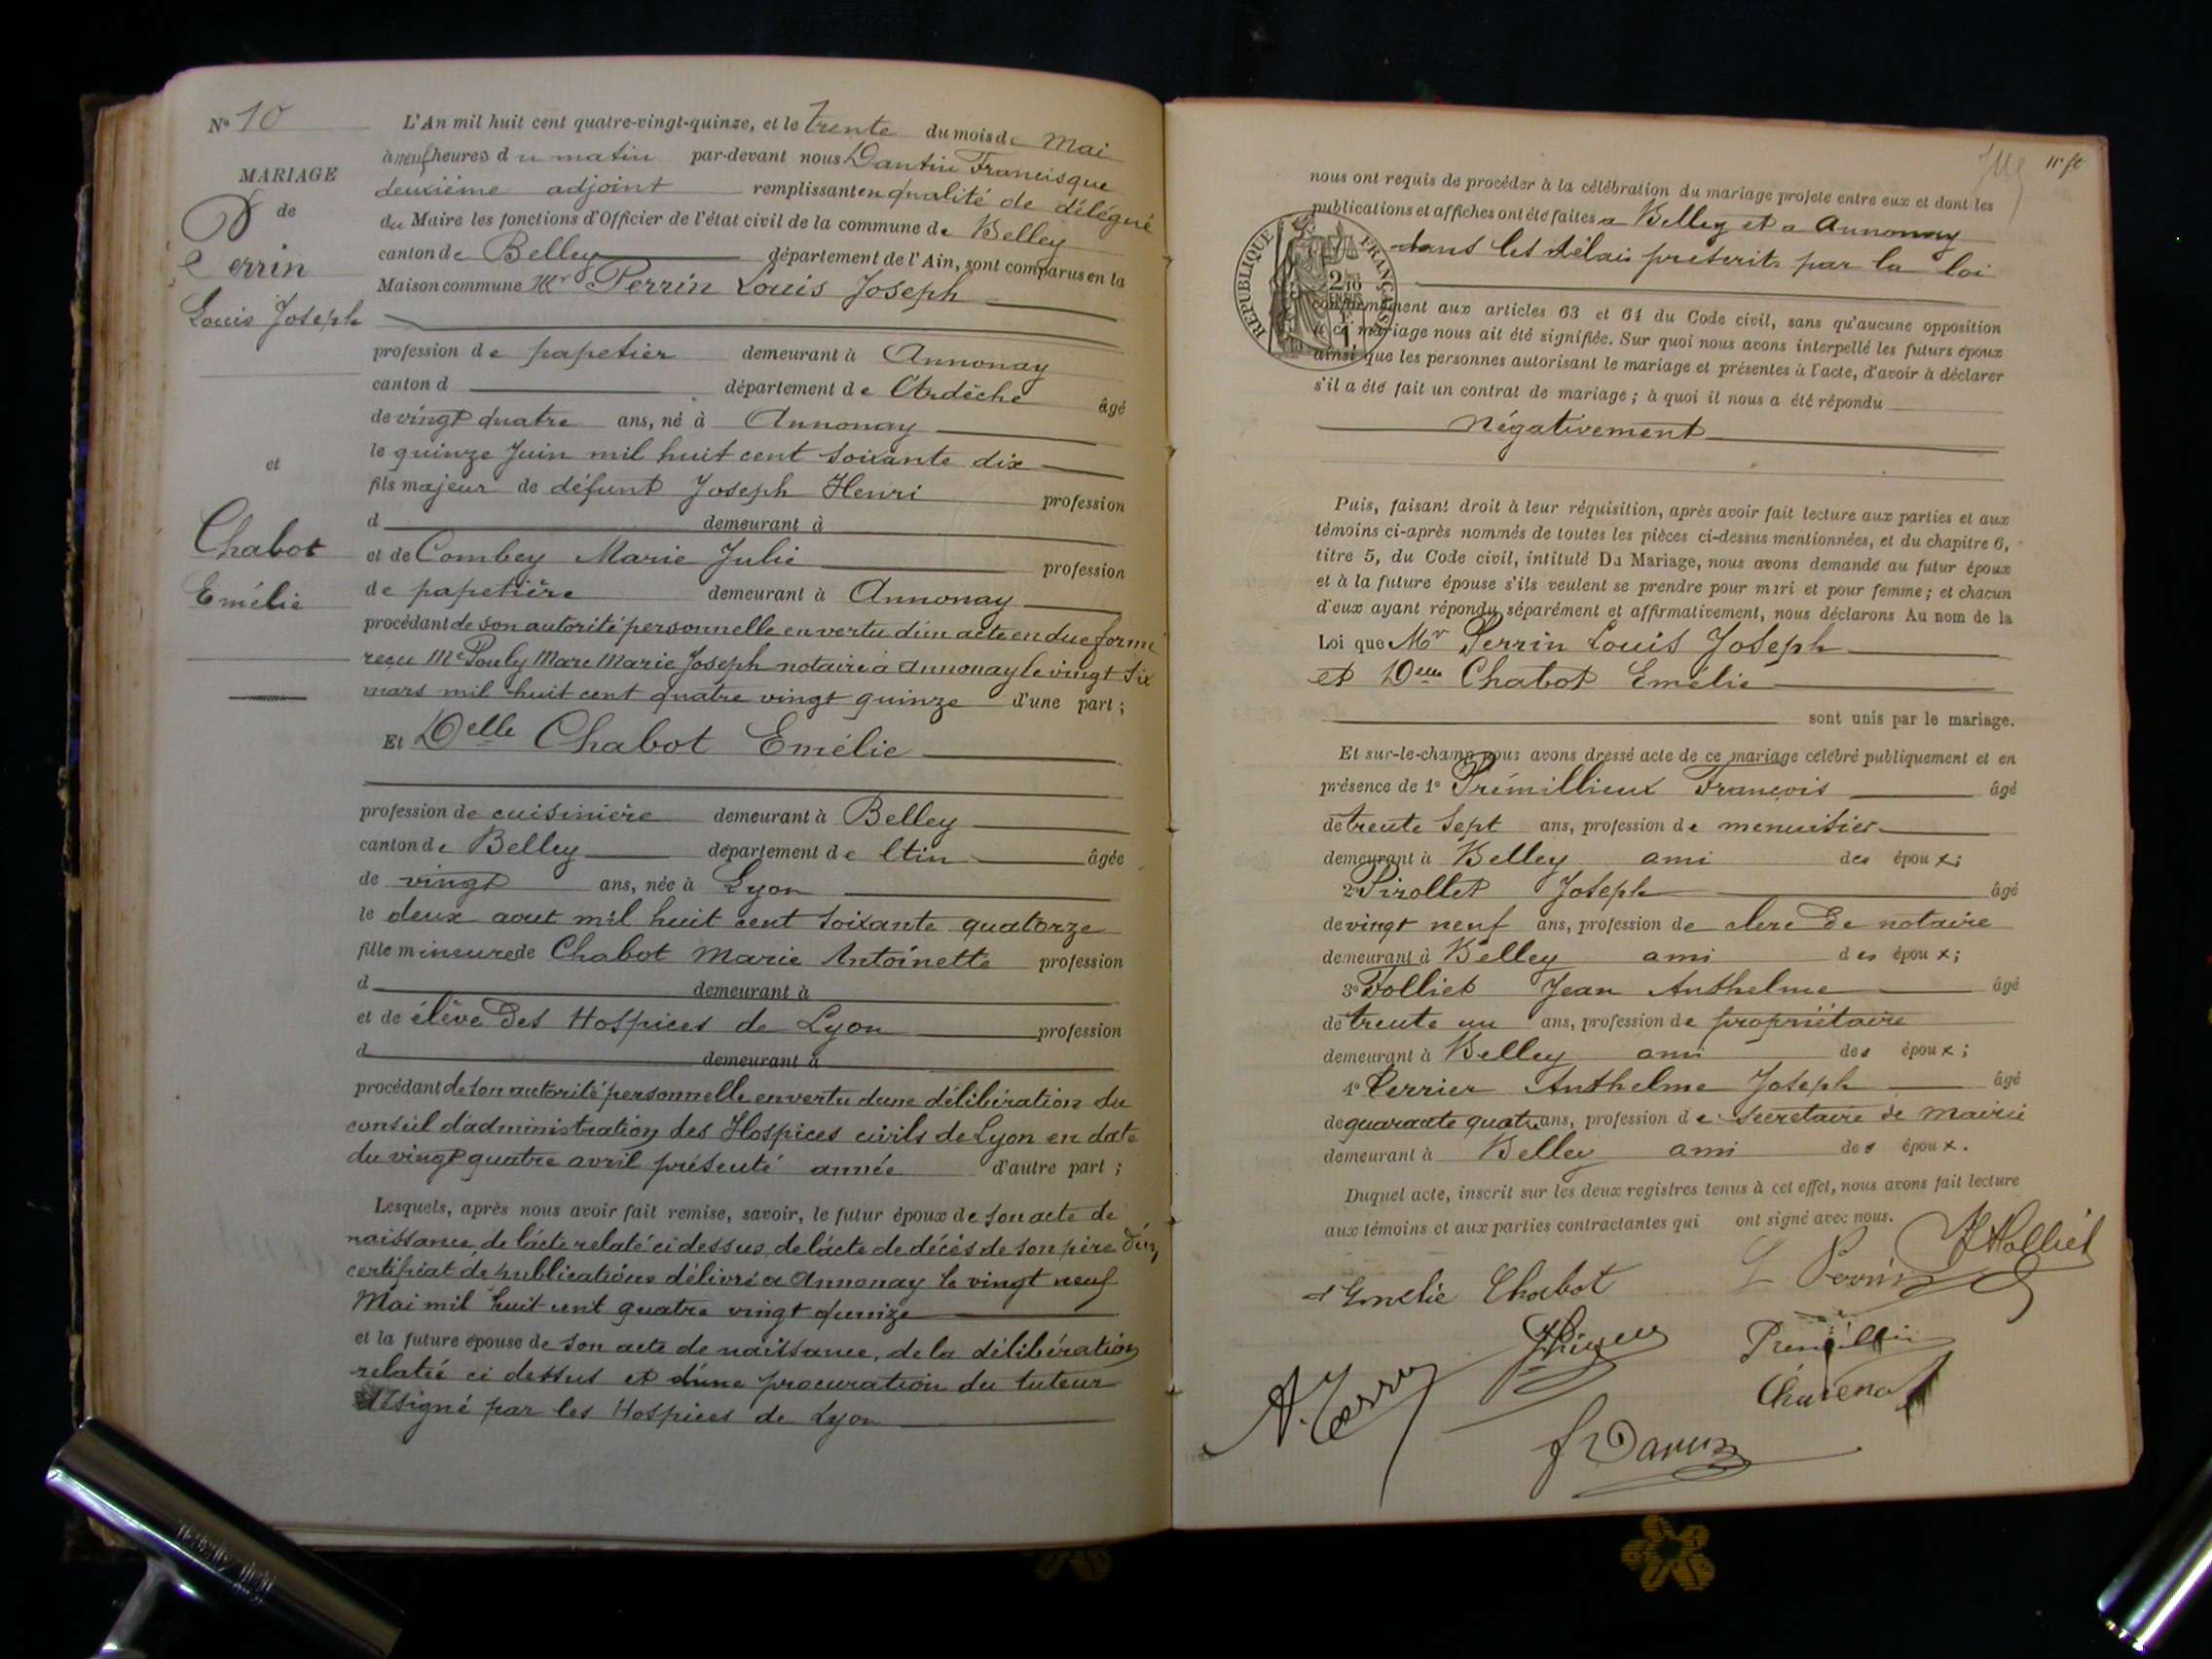 N° 10
MARIAGE
de
Perrin
Louis Joseph
et
Chabot
Emélie
L'An mil huit cent quatre-vingt-quinze, et le trente du mois de Mai
à neuf heures du matin par-devant nous Dantin Francisque
deuxième adjoint remplissant en qualité de délégué
du Maire les fonctions d'Officier de l'état civil de la commune de Belley
canton de Belley département de l'Ain, sont comparus en la
Maison commune Mr Perrin Louis Joseph
profession de papetier demeurant à Annonay
canton d département de l'Ardèche âgé
de vingt quatre ans, né à Annonay
le quinze Juin mil huit cent soixante dix
fils majeur de défunt Joseph Henri profession
d demeurant à
et de Combey Marie Julie profession
de papetière demeurant à Annonay
procédant de son autorité personnelle en vertu d'un acte en due forme
reçu Me Pouly Marc Marie Joseph notaire à Annonay le vingt six
mars mil huit cent quatre vingt quinze d'une part ;
Et Delle Chabot Emélie
profession de cuisinière demeurant à Belley
canton de Belley département de l'Ain âgée
de vingt ans, née à Lyon
le deux aout mil huit cent soixante quatorze
fille mineure de Chabot Marie Antoinette profession
d demeurant à
et de élève des Hospices de Lyon profession
d demeurant à
procédant de son autorité personnelle en vertu d'une délibération du
conseil d'administration des Hospices civils de Lyon en date
du vingt quatre avril présente année d'autre part ;
Lesquels, après nous avoir fait remise, savoir, le futur époux de son acte de
naissance, de l'acte relaté ci dessus, de l'acte de décès de son père d'un,
certificat de publications délivré a Annonay le vingt neuf
Mai mil huit cent quatre vingt quinze
et la future épouse de son acte de naissance, de la délibération
relatée ci dessus et d'une procuration du tuteur
désigné par les Hospices de Lyon
nous ont requis de procéder à la célébration du mariage projeté entre eux et dont les
publications et affiches ont été faites a Belley et a Annonay
dans les délais prescrits par la loi
REPUBLIQUE FRANÇAISE
conformément aux articles 63 et 64 du Code civil, sans qu'aucune opposition
à ce mariage nous ait été signifiée. Sur quoi nous avons interpellé les futurs époux
ainsi que les personnes autorisant le mariage et présentes à l'acte, d'avoir à déclarer
s'il a été fait un contrat de mariage ; à quoi il nous a été répondu
négativement
Puis, faisant droit à leur réquisition, après avoir fait lecture aux parties et aux
témoins ci-après nommés de toutes les pièces ci-dessus mentionnées, et du chapitre 6,
titre 5, du Code civil, intitulé Du Mariage, nous avons demandé au futur époux
et à la future épouse s'ils veulent se prendre pour mari et pour femme ; et chacun
d'eux ayant répondu séparément et affirmativement, nous déclarons Au nom de la
Loi que Mr Perrin Louis Joseph
et Delle Chabot Emélie
sont unis par le mariage.
Et sur-le-champ nous avons dressé acte de ce mariage célébré publiquement et en
présence de 1° Prémillieux François âgé
de trente sept ans, profession de menuisier
demeurant à Belley ami des époux ;
2° Pirollet Joseph âgé
de vingt neuf ans, profession de clerc de notaire
demeurant à Belley ami des époux ;
3° Folliet Jean Anthelme âgé
de trente un ans, profession de propriétaire
demeurant à Belley ami des époux ;
4° Perrier Anthelme Joseph âgé
de quarante quatre ans, profession de secrétaire de Mairie
demeurant à Belley ami des époux.
Duquel acte, inscrit sur les deux registres tenus à cet effet, nous avons fait lecture
aux témoins et aux parties contractantes qui ont signé avec nous.
Emelie Chabot
L Perrin